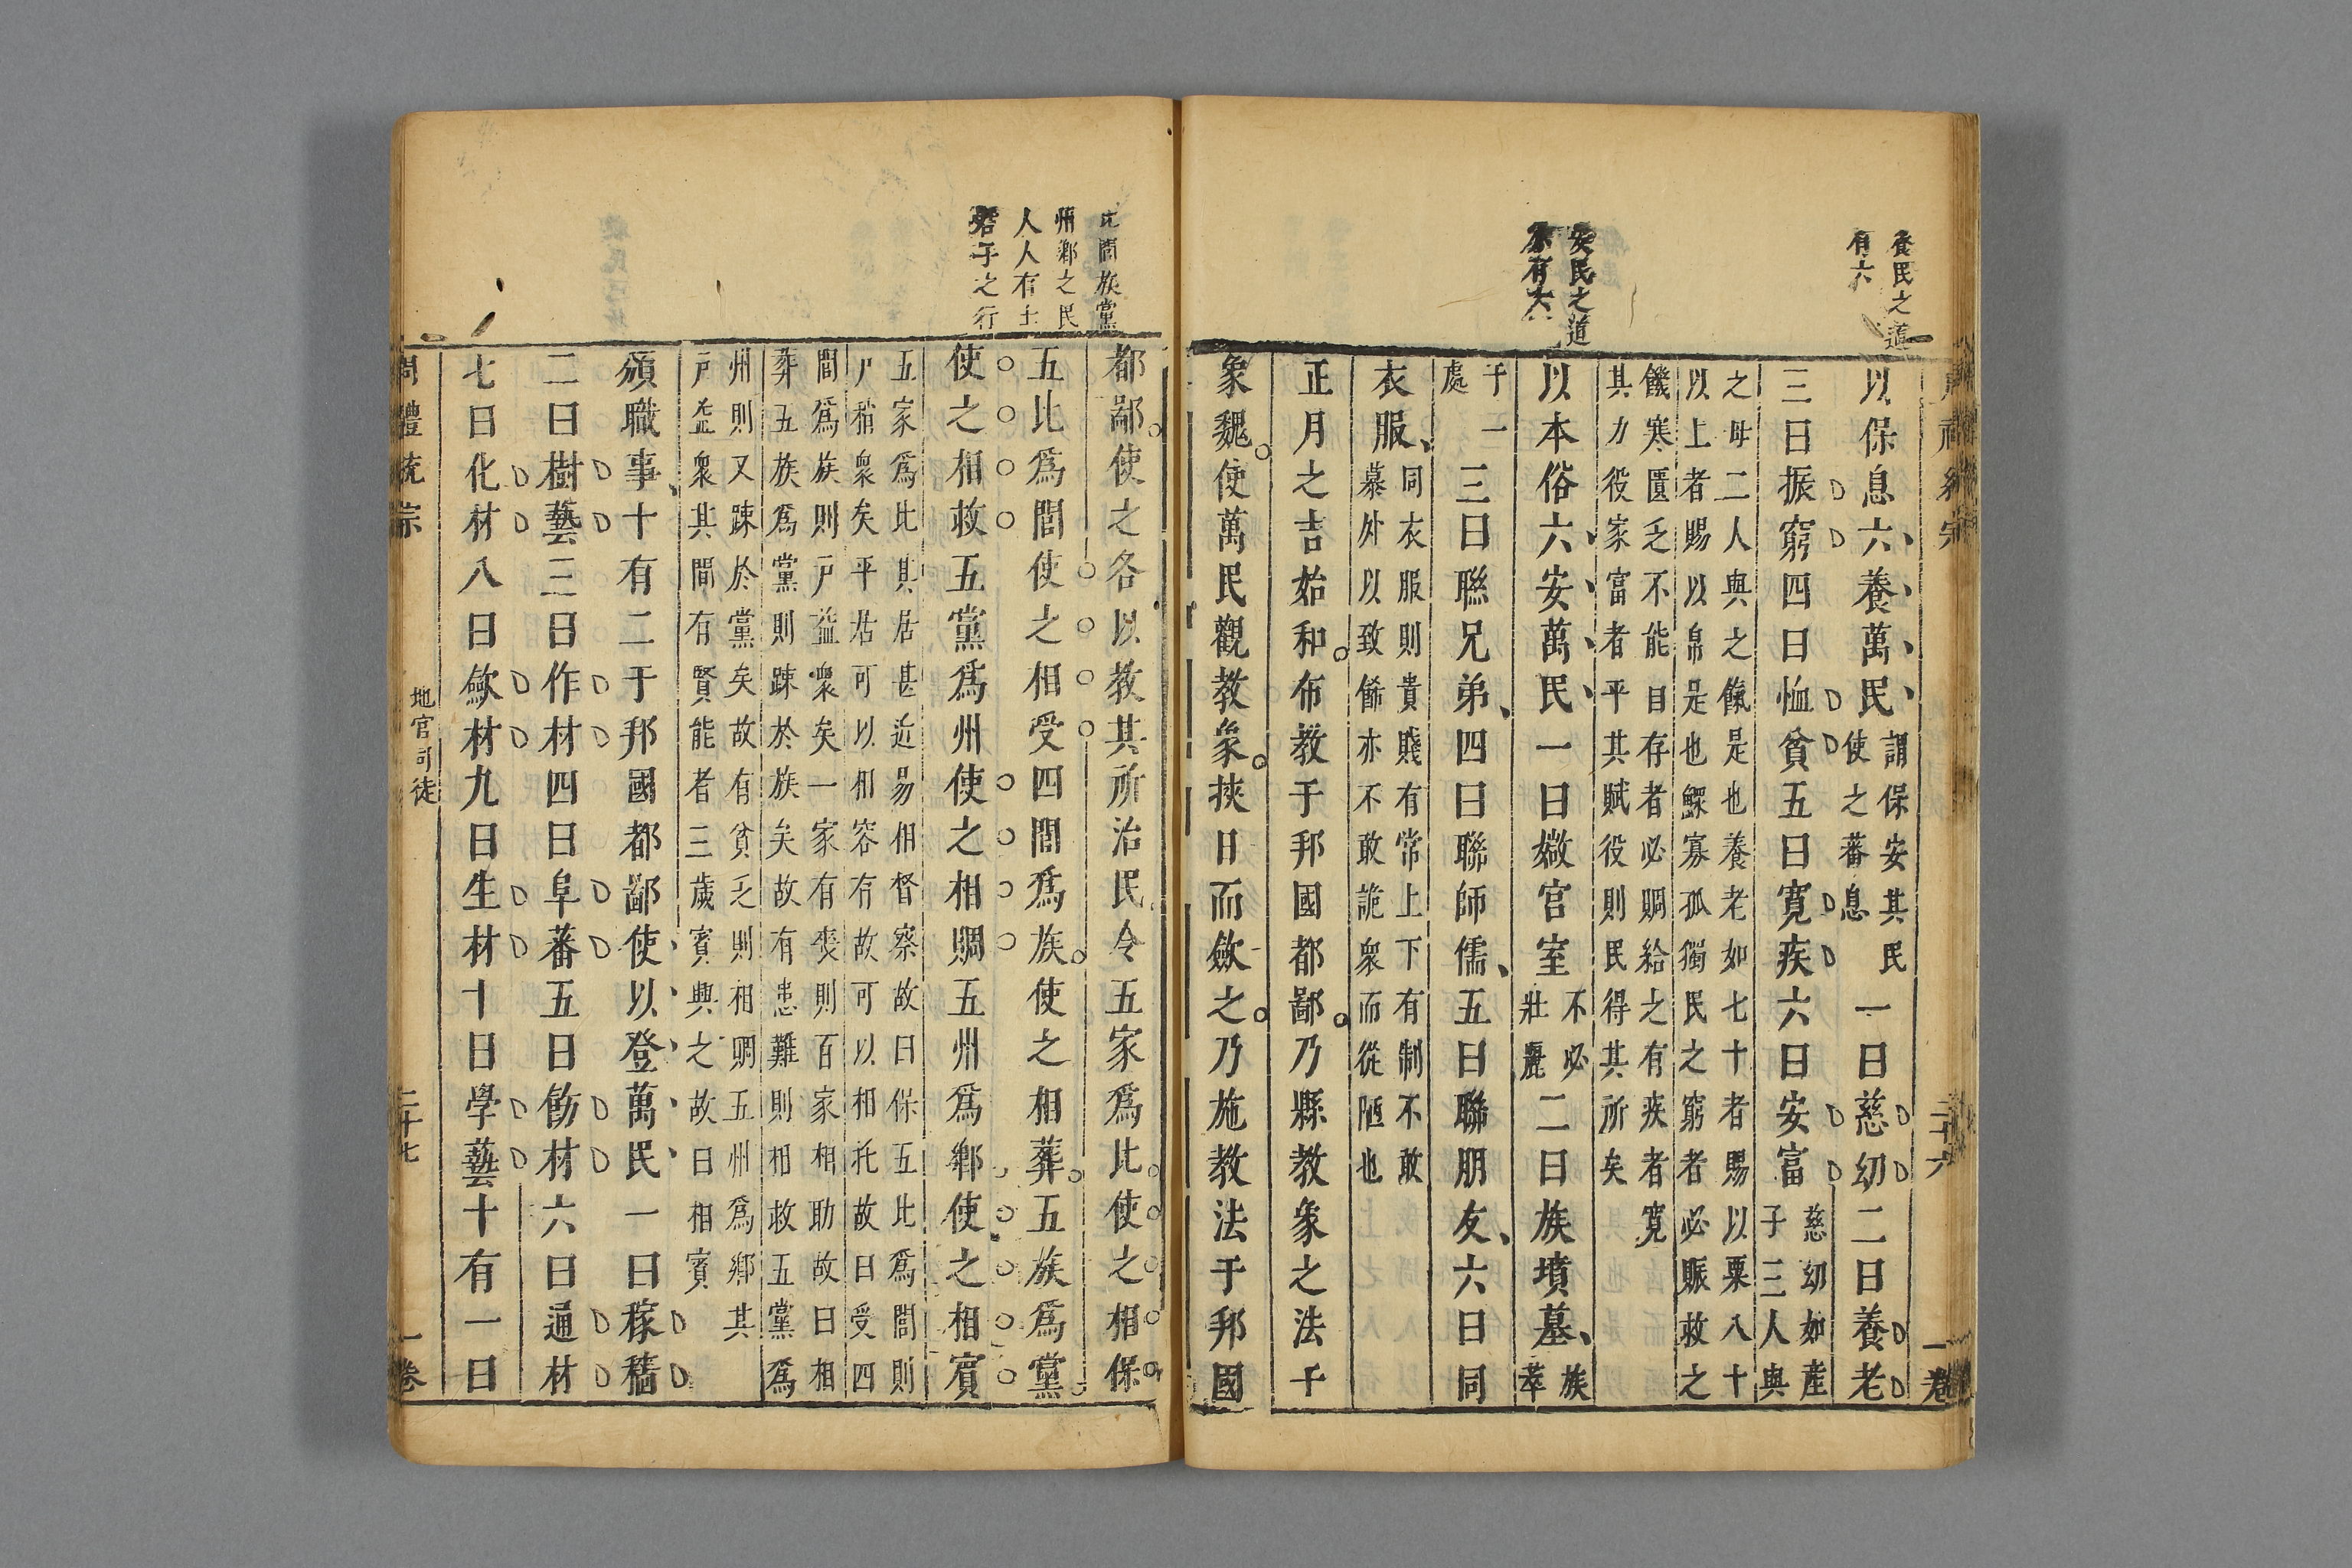 養民之道
有六
安民之道
亦有六
以保息六養萬民謂保安其民使之蕃息一曰慈幼二曰養老
三曰振窮四曰恤貧五曰寬疾六曰安富慈幼如産子三人與
之母二人與之餼是也養老如七十者賜以粟八十
以上者賜以帛是也鰥寡孤獨民之窮者必賑救之
饑寒匱乏不能自存者必賙給之有疾者寬
其力役家富者平其賦役則民得其所矣
以本俗六安萬民一曰媺官室不必壯麗二曰族墳墓族萃
于一處三曰聯兄弟四曰聯師儒五曰聯朋友六曰同
衣服同衣服則貴賤有常上下有制不敢慕外以致餙亦不敢詭衆而從陋也
正月之吉始和布教于邦國都鄙乃縣教象之法于
象魏使萬民觀教象挾日而斂之乃施教法于邦國
二十六
一卷
比閭族黨
州鄉之民
人人有士
君子之行
都鄙使之各以教其所治民令五家爲比使之相保
五比爲閭使之相受四閭爲族使之相葬五族爲黨
使之相救五黨爲州使之相賙五州爲鄉使之相賓
五家爲比其居甚近易相督察故曰保五比爲閭則
戶稍衆矣平居可以相容有故可以相托故曰受四
閭爲族則戶益衆矣一家有喪則百家相助故曰相
葬五族爲黨則踈於族矣故有患難則相救五黨爲
州則又踈於黨矣故有貧乏則相賙五州爲鄉其
戶益衆其間有賢能者三歲賓興之故曰相賓
頒職事十有二于邦國都鄙使以登萬民一曰稼穡
二曰樹藝三曰作材四曰阜蕃五曰飭材六曰通材
七曰化材八曰斂材九曰生材十曰學藝十有一曰
周禮統宗
地官司徒
二十七
一卷